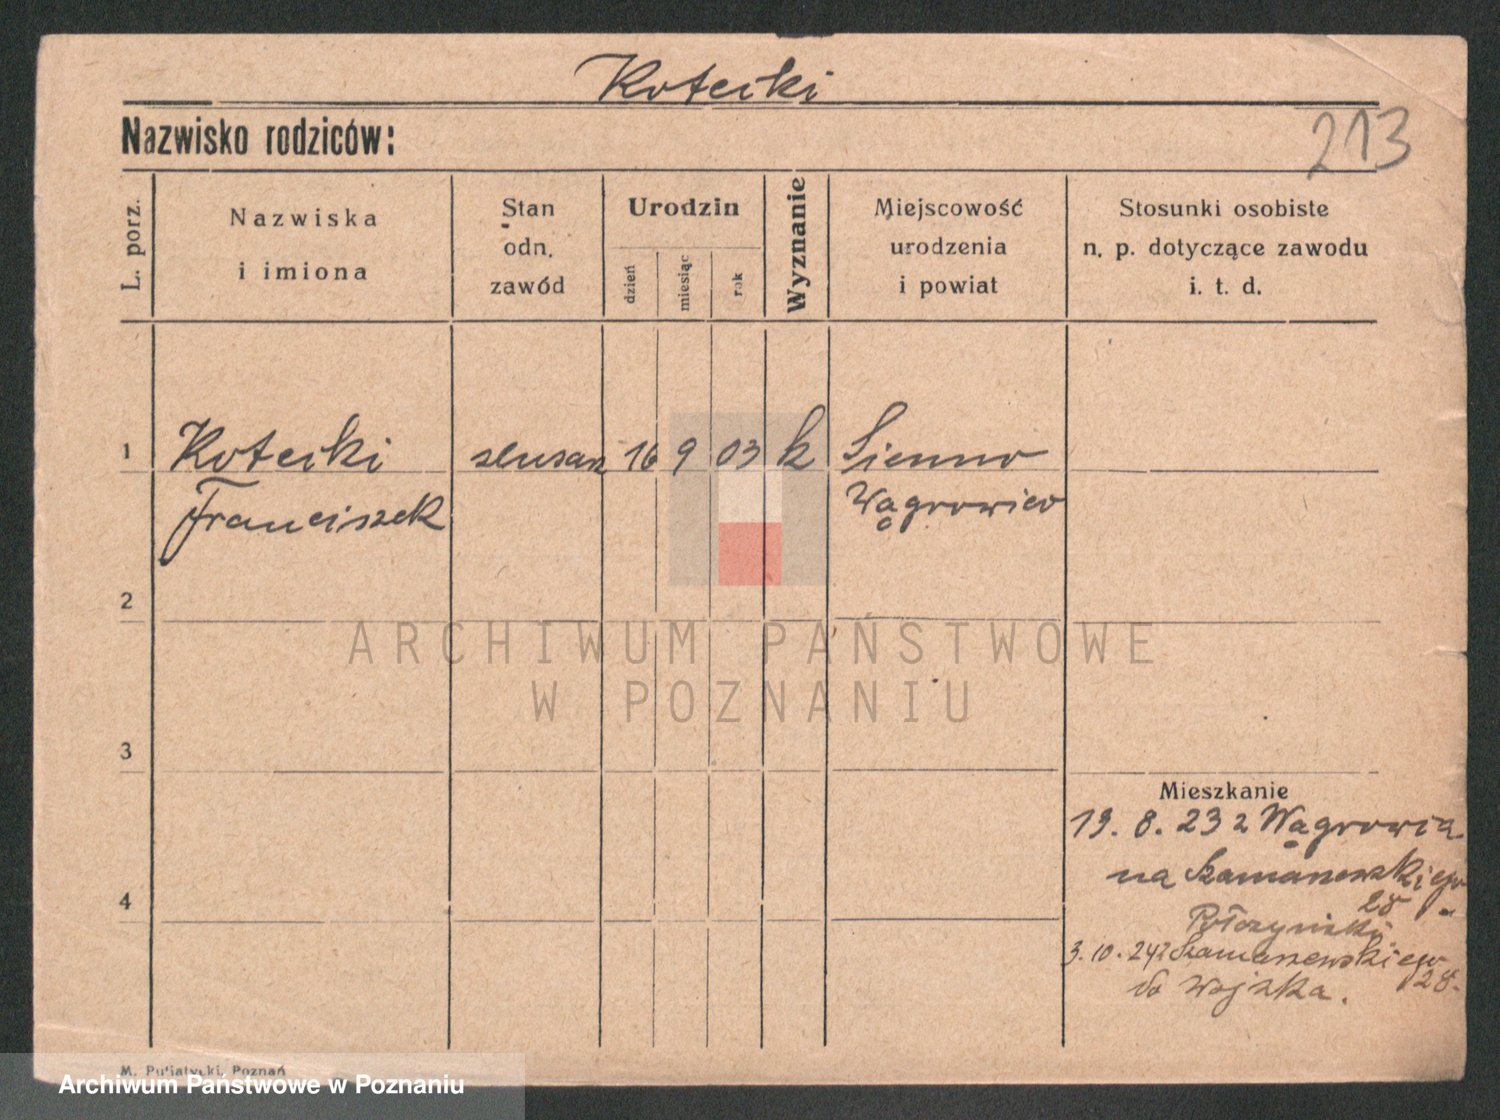 Kotecki
213
Nazwisko rodziców:
L. porz.
Nazwiska
i imiona
Stan
odn.
zawód
Urodzin
dzień
miesiąc
rok
Wyznanie
Miejscowość
urodzenia
i powiat
Stosunki osobiste
n. p. dotyczące zawodu
i. t. d.
1 Kotecki slusarz 16 9 03 k Sienno
Franciszek Wągrowiec
2
ARCHIWUM PAŃSTWOWE
W POZNANIU
3
Mieszkanie
19. 8. 23 z Wągrowca
na Szamarzewskiego
28
4
3. 10. 24 z Szamarzewskiego
28.
do Wojska.
M. Putiatycki, Poznań
Archiwum Państwowe w Poznaniu